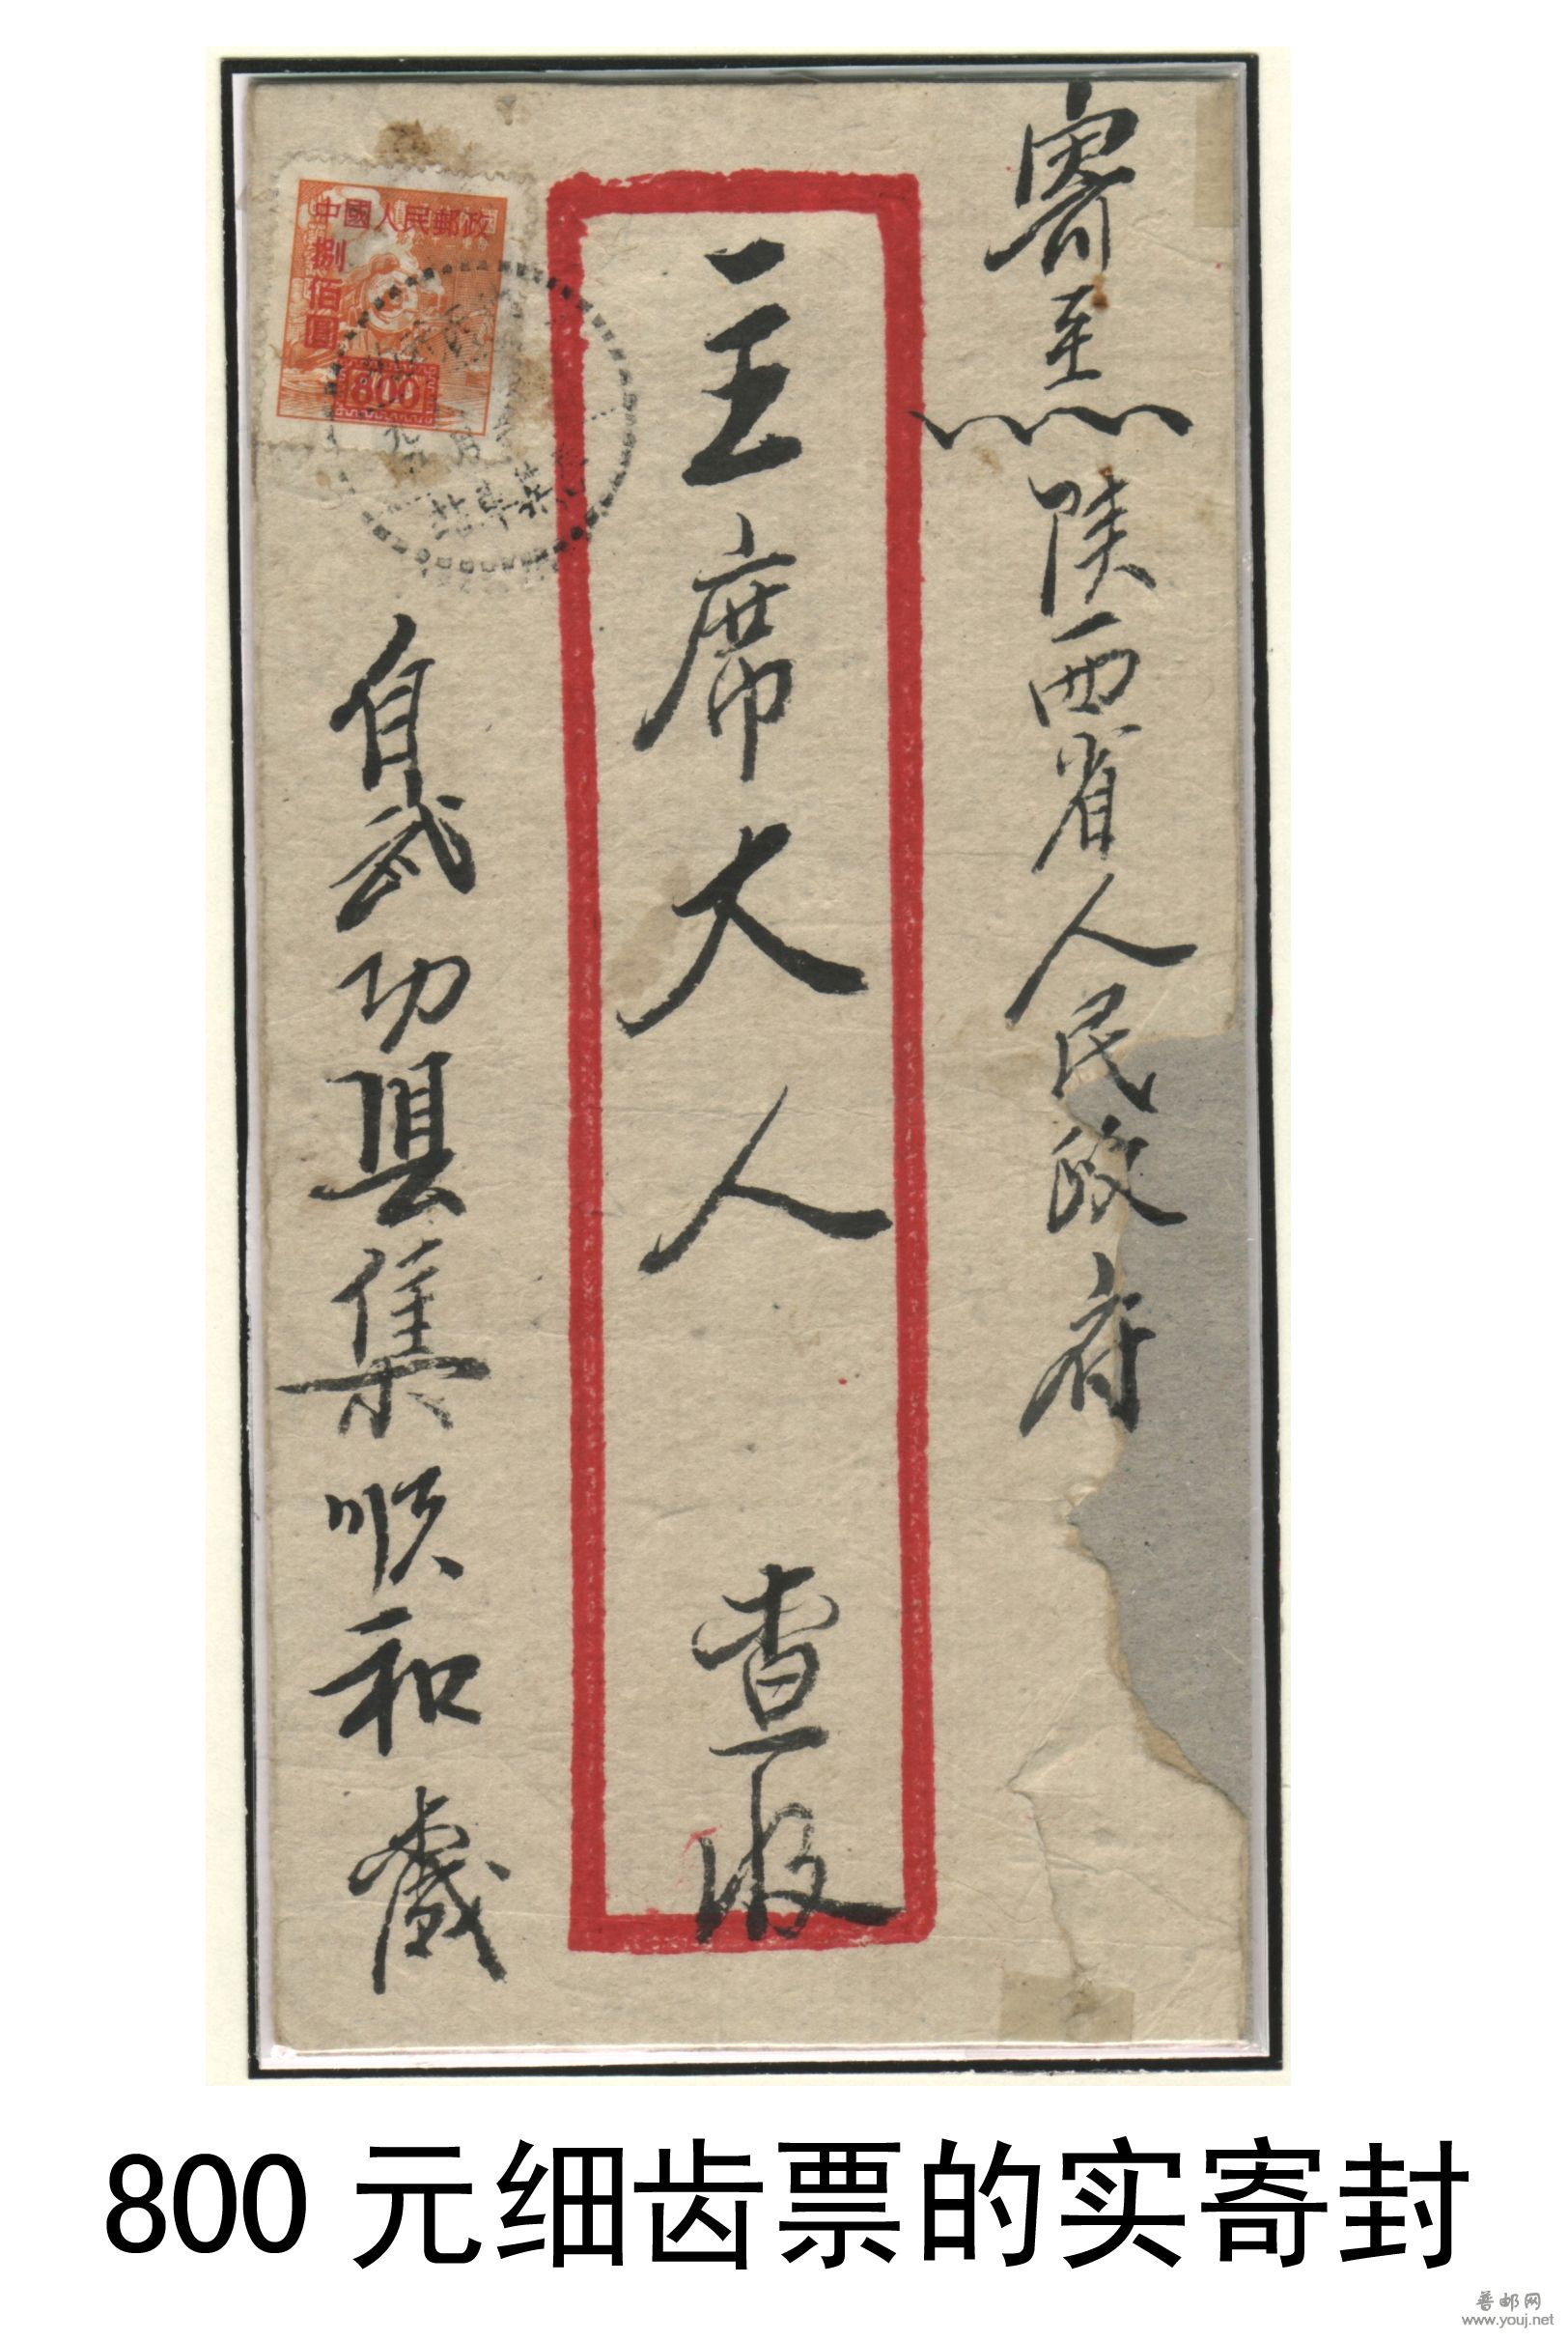 寄至陕西省人民政府
主席大人 查收
自武功县集顺和
中國人民郵政
捌佰圓
800
800 元细齿票的实寄封
普邮网
www.youj.net